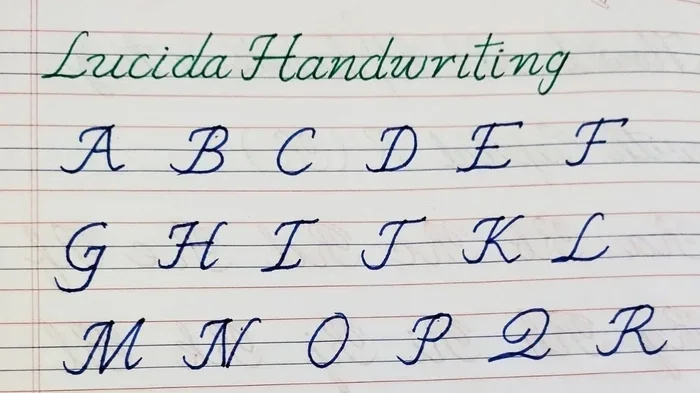 Lucida Handwriting
A B C D E F
G H I J K L
M N O P Q R